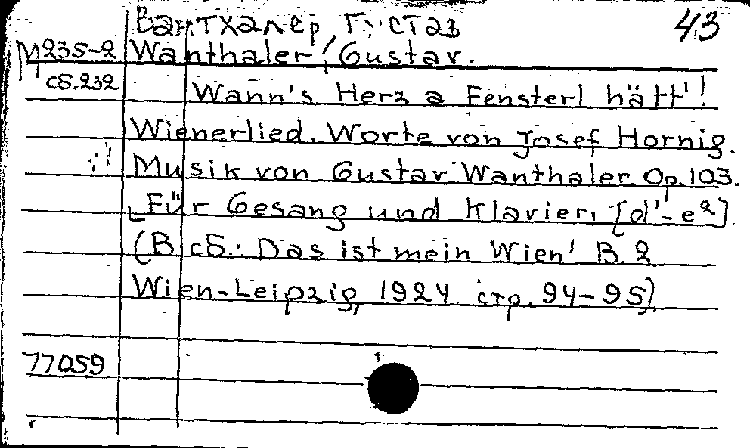 Вантхалер, Густав 43
М235-2 Wanthaler, Gustav.
сб.232 Wann's Herz a Fensterl hätt'!
Wienerlied. Worte von Josef Hornig.
Musik von Gustav Wanthaler Op. 103.
Für Gesang und Klavier. [d'-e²]
(В сб.: Das ist mein Wien! B. 2
Wien-Leipzig, 1924 стр. 94-95)
77059